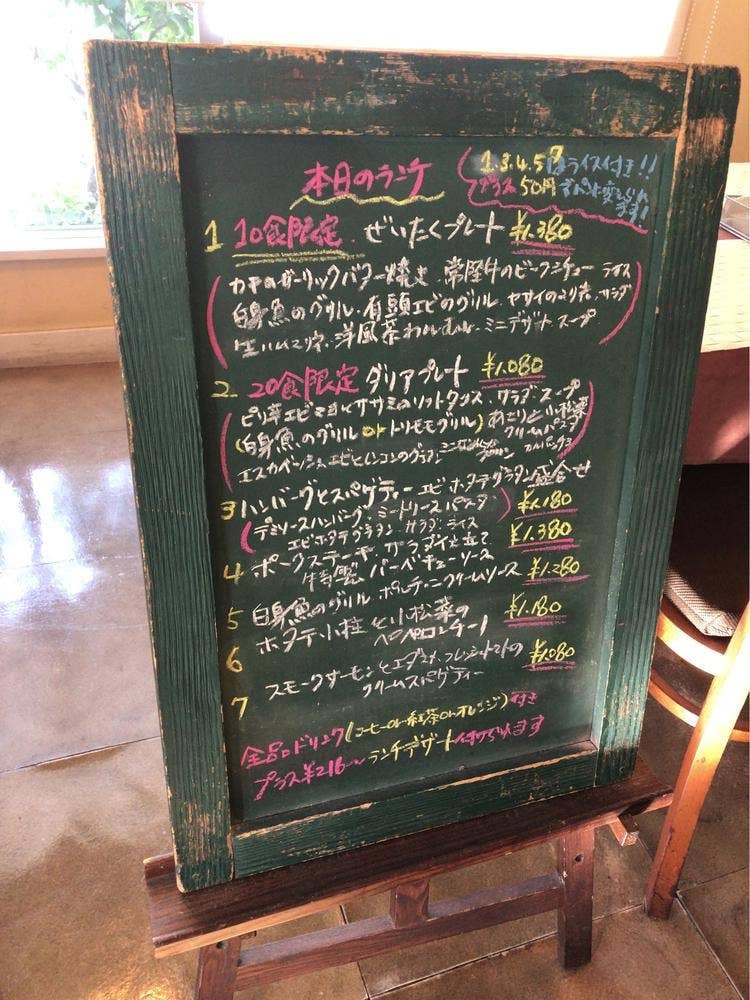 本日のランチ
1.3.4.5.7はライス付き!!
プラス50円でパンに変えられ
ます!
1 10食限定. ぜいたくプレート ¥1.380
カキのガーリックバター焼き. 常陸牛のビーフシチュー ライス
白身魚のグリル. 有頭エビのグリル. ヤサイの サラダ
生ハム 洋風茶わんむし. ミニデザート スープ
2. 20食限定 ダリアプレート ¥1.080
ピリ辛エビマヨとササミのソフト サラダ スープ
(白身魚のグリル or トリモモグリル) あさりと小松菜
クリームパスタ
エスカベッシュ エビとレンコンのグラタン
3 ハンバーグとスパゲティー エビ ホタテグラタン 盛合せ
(デミソースハンバーグ. ミートソースパスタ ¥1.180
エビホタテグラタン サラダ. ライス)
4 ポークステーキ サラダ仕立て ¥1.380
特製 バーベキューソース
5 白身魚のグリル ポルチーニクリームソース ¥1.280
6 ホタテ小柱と小松菜の ¥1.180
ペペロンチーノ
7 スモークサーモンとエダマメ. フレッシュトマトの ¥1.080
クリームスパゲティー
全品ドリンク(コーヒーor紅茶orオレンジ)付き
プラス¥216〜ランチデザート付けられます